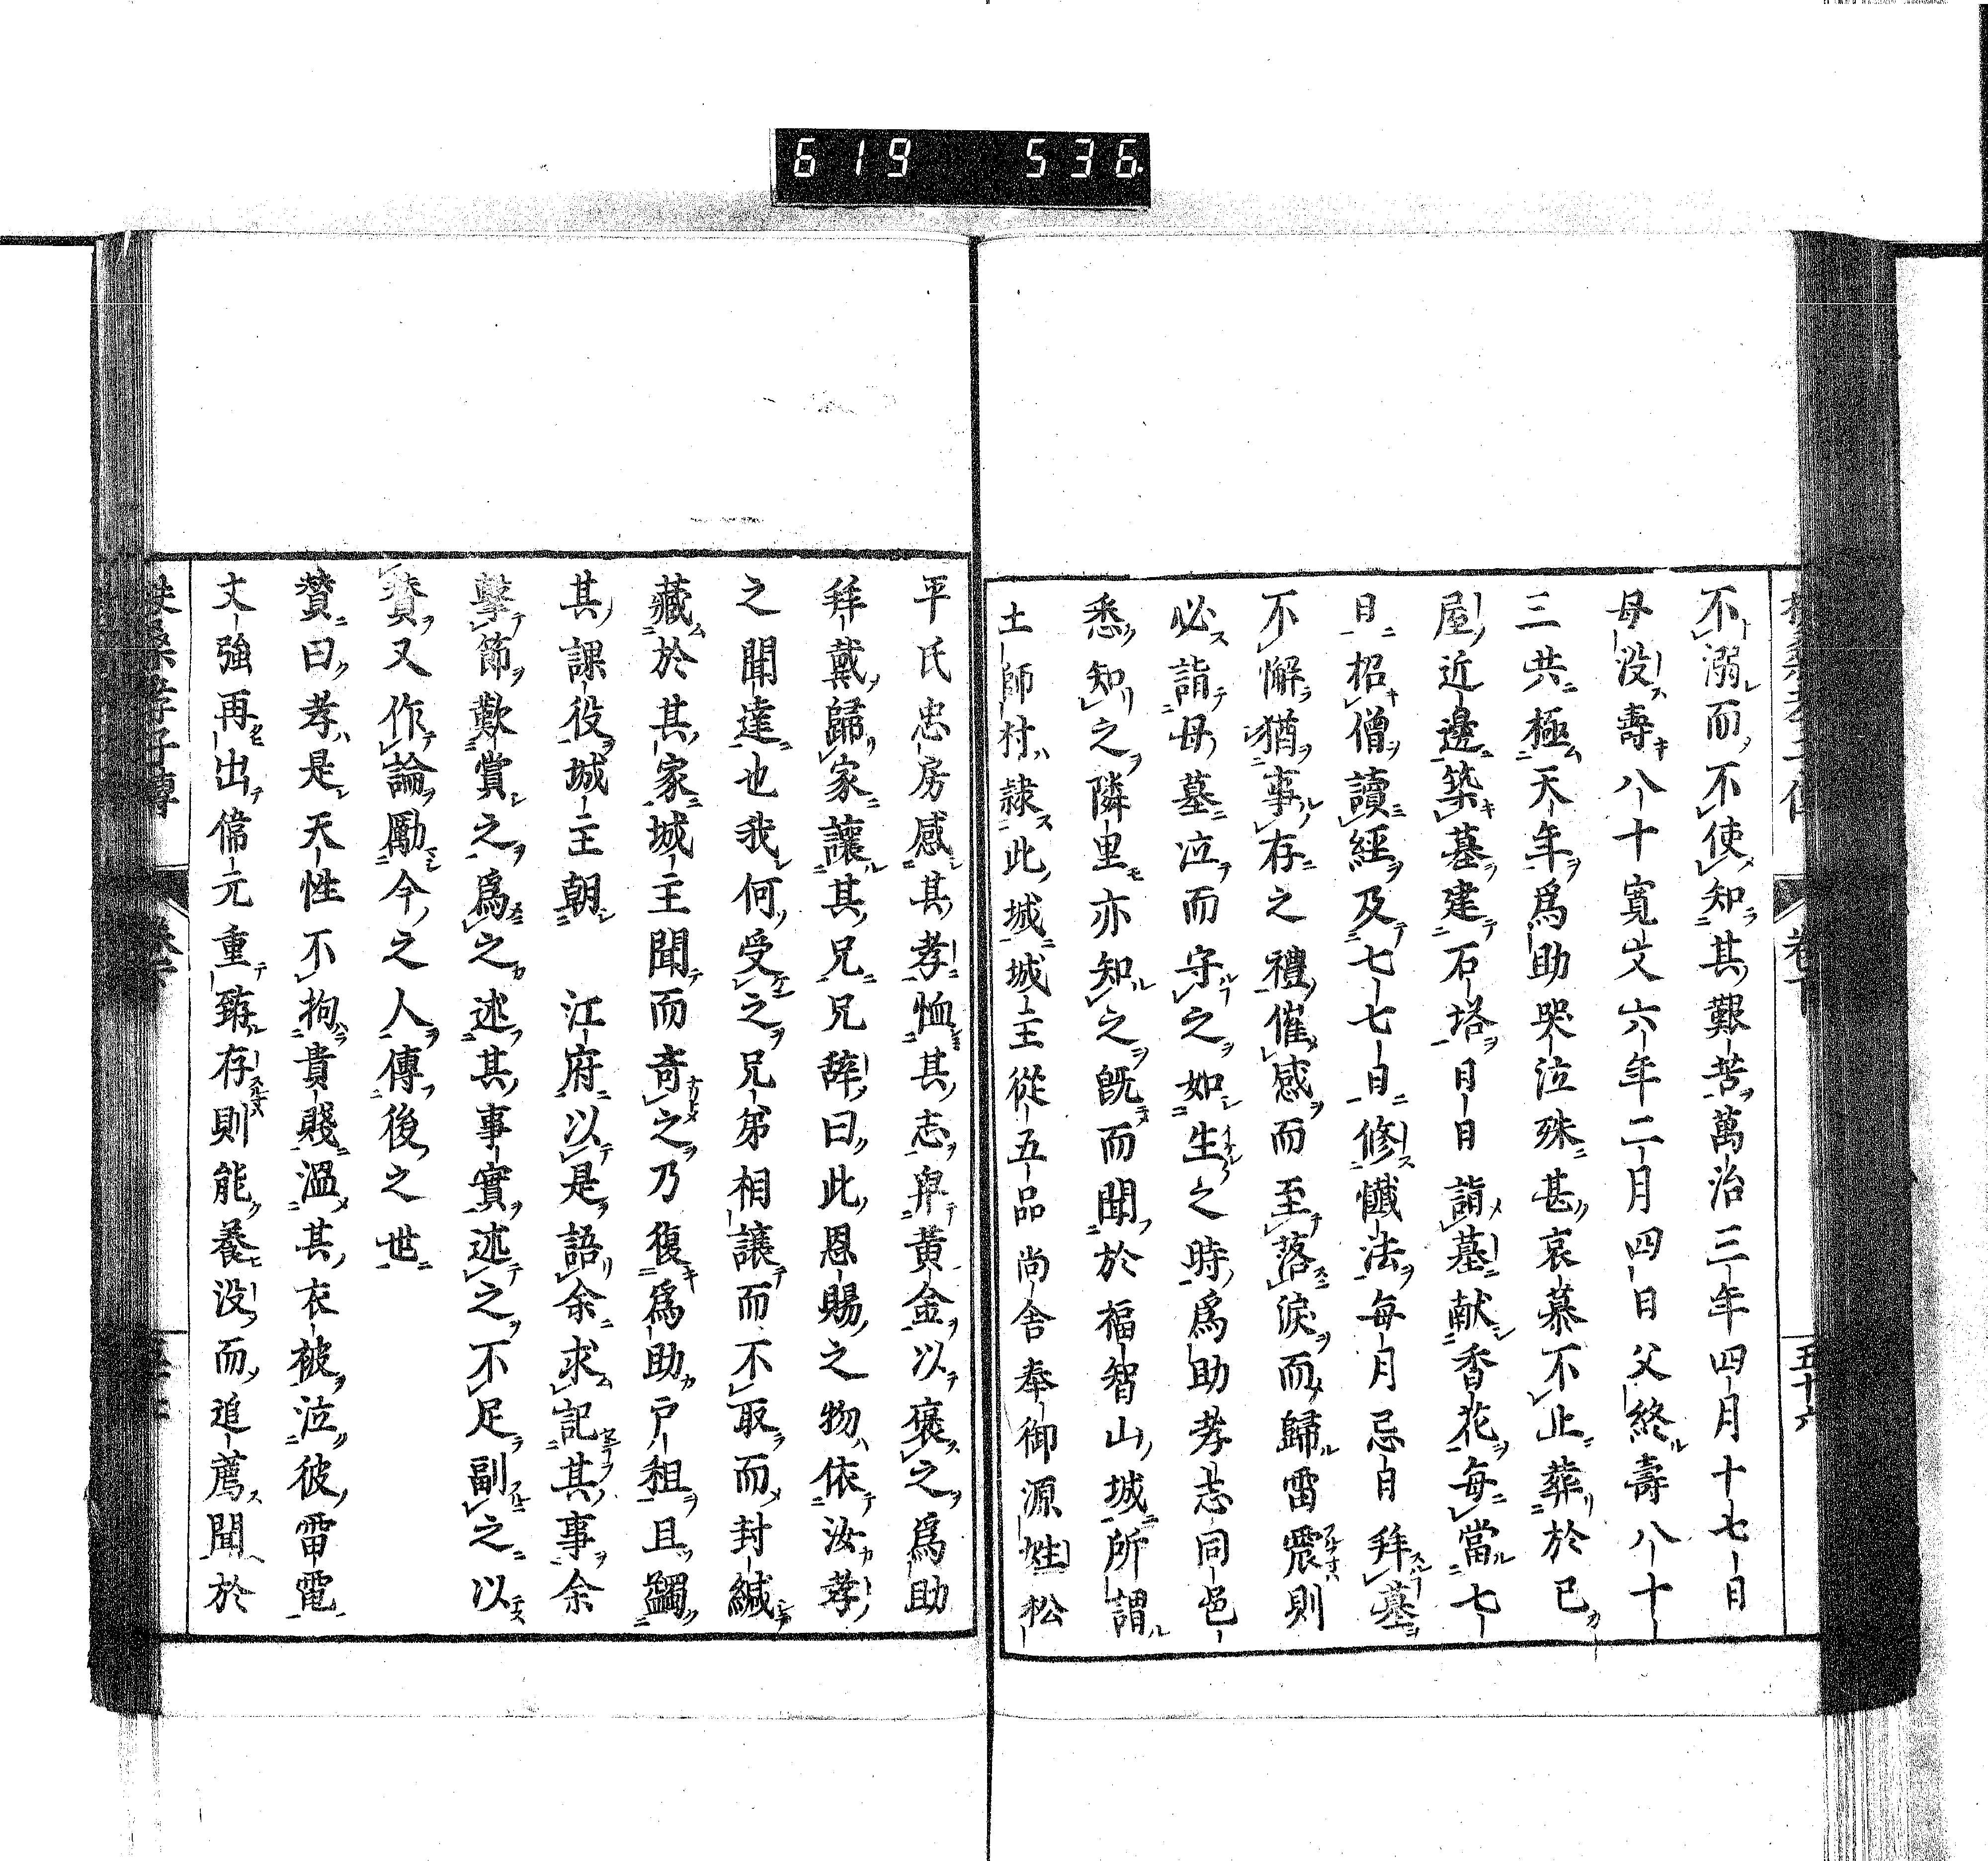 619 536
五十六
不溺而不使知其艱苦萬治三年四月十七日
母没壽八十寛文六年二月四日父終壽八十
三共極天年爲助哭泣殊甚哀慕不止葬於己
屋近邊築墓建石塔日日詣墓献香花毎當七
日招僧讀經及七七日修懺法毎月忌日拜墓
不懈猶事存之禮催感而至落淚而歸雷震則
必詣母墓泣而守之如生之時爲助孝志同邑
悉知之隣里亦知之既而聞於福智山城所謂
土師村隷此城城主從五品尚舎奉御源姓松
平氏忠房感其孝恤其志畀黄金以褒之爲助
拜戴歸家讓其兄兄辞曰此恩賜之物依汝孝
之聞達也我何受之兄弟相讓而不取而封緘
藏於其家城主聞而奇之乃復爲助戸租且蠲
其課役城主朝 江府以是語余求記其事余
擊節歎賞之爲之述其事實述之不足副之以
賛又作論勵今之人傳後之世
賛曰孝是天性不拘貴賤溫其衣被泣彼雷電
丈強再出偉元重臻存則能養没而追薦聞於